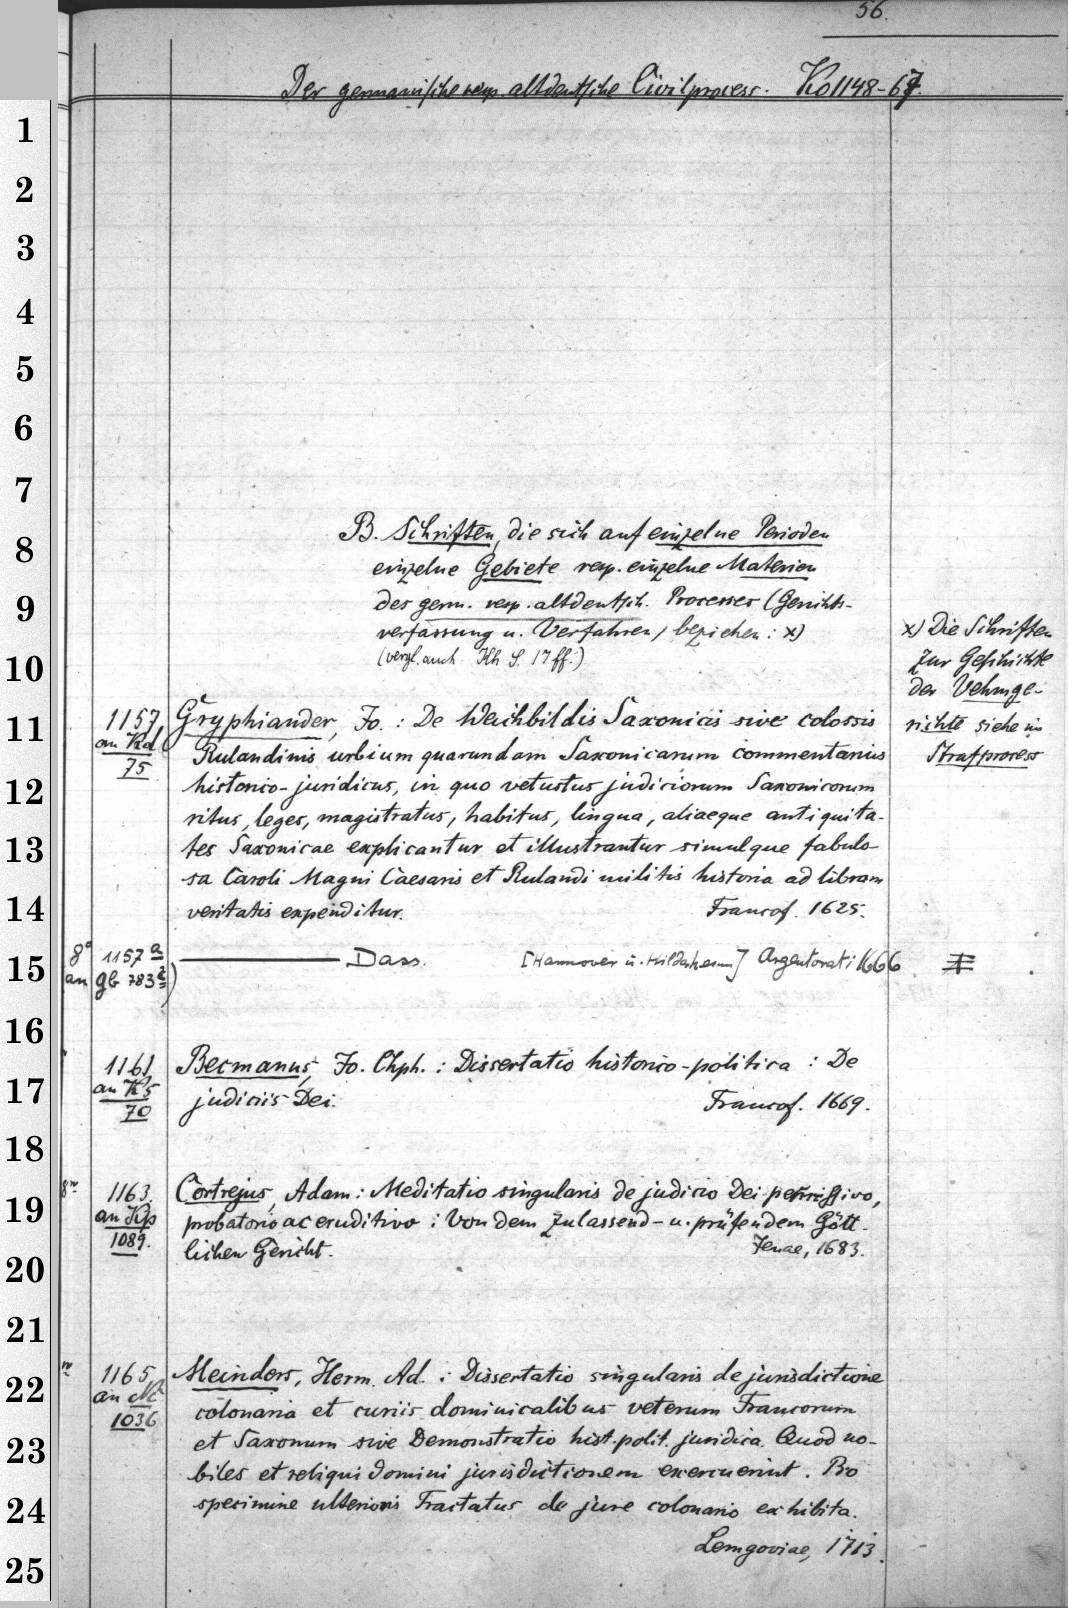 56.
Der germanische resp. altdeutsche Civilprocess. Ko 1148-67.
1
2
3
4
5
6
7
B. Schriften, die sich auf einzelne Perioden
8
einzelne Gebiete resp. einzelne Materien
des germ. resp. altdeutsch. Processes (Gerichts-
9
verfassung u. Verfahren) beziehen: x)
x) Die Schriften
(vergl. auch Kh S. 17 ff.)
10
zur Geschichte
der Vehmge-
richte siehe im
Strafprocess
11
1157 Gryphiander, Jo. : De Weichbildis Saxonicis sive colossis
an Kd Rulandinis urbium quarundam Saxonicarum commentarius
75
12
historico-juridicus, in quo vetustus judiciorum Saxonicorum
ritus, leges, magistratus, habitus, lingua, aliaeque antiquita-
13
tes Saxonicae explicantur et illustrantur simulque fabulo-
sa Caroli Magni Caesaris et Rulandi militis historia ad libram
14
veritatis expenditur. Francof. 1625.
8° 1157 a Dass. [Hannover u. Hildesheim] Argentorati 1666
15
an Gb 783
16
1161 Becmanus, Jo. Chph. : Dissertatio historico-politica : De
17
an K
70
judiciis Dei. Francof. 1669.
18
1163. Cortrejus, Adam : Meditatio singularis de judicio Dei permissivo,
19
an Kp probatorio ac eruditivo : Von dem zulassend- u. prüfendem Gött-
1089.
lichen Gericht. Jenae, 1683.
20
21
1165 Meinders, Herm. Ad. : Dissertatio singularis de jurisdictione
22
an
1036
colonaria et curiis dominicalibus veterum Francorum
23
et Saxonum sive Demonstratio hist. polit. juridica. Quod no-
biles et reliqui domini jurisdictionem exercuerint. Pro
24
specimine ulterioris Tractatus de jure colonario exhibita.
Lemgoviae, 1713.
25